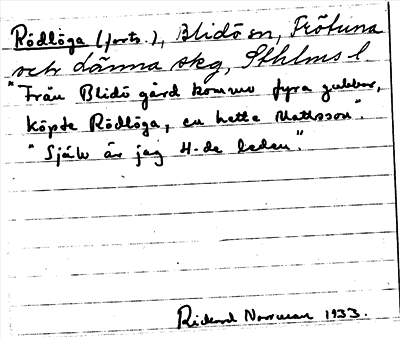 Rödlöga (forts.), Blidö sn, Frötuna
och Länna skg, Sthlms l.
"Från Blidö gård kommo fyra gubbar,
köpte Rödlöga, en hette Mattsson".
"Själv är jag 4-de leden".
Rickard Norrman 1933.